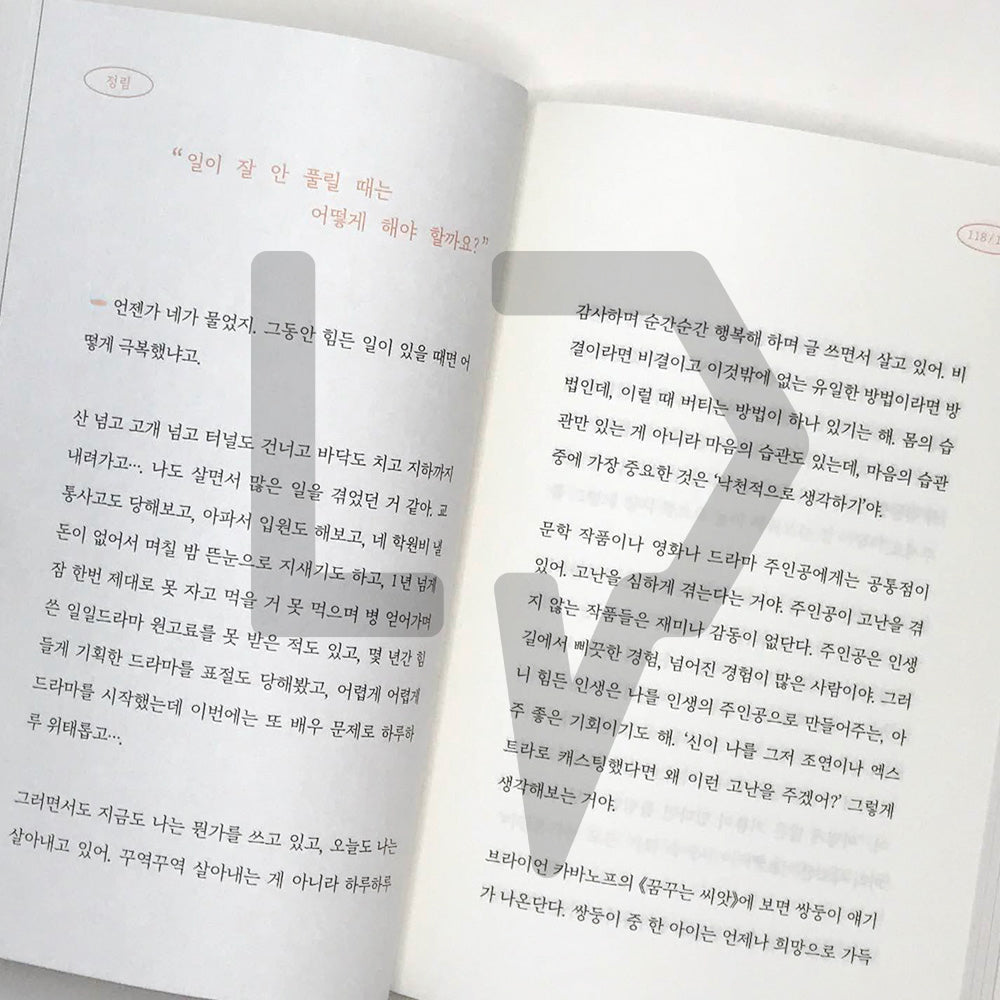 정림
“일이 잘 안 풀릴 때는
어떻게 해야 할까요?”
언젠가 네가 물었지. 그동안 힘든 일이 있을 때면 어
떻게 극복했냐고.
산 넘고 고개 넘고 터널도 건너고 바닥도 치고 지하까지
내려가고…. 나도 살면서 많은 일을 겪었던 거 같아. 교
통사고도 당해보고, 아파서 입원도 해보고, 네 학원비 낼
돈이 없어서 며칠 밤 뜬눈으로 지새기도 하고, 1년 넘게
잠 한번 제대로 못 자고 먹을 거 못 먹으며 병 얻어가며
쓴 일일드라마 원고료를 못 받은 적도 있고, 몇 년간 힘
들게 기획한 드라마를 표절도 당해봤고, 어렵게 어렵게
드라마를 시작했는데 이번에는 또 배우 문제로 하루하
루 위태롭고….
그러면서도 지금도 나는 뭔가를 쓰고 있고, 오늘도 나는
살아내고 있어. 꾸역꾸역 살아내는 게 아니라 하루하루
118/1
감사하며 순간순간 행복해 하며 글 쓰면서 살고 있어. 비
결이라면 비결이고 이것밖에 없는 유일한 방법이라면 방
법인데, 이럴 때 버티는 방법이 하나 있기는 해. 몸의 습
관만 있는 게 아니라 마음의 습관도 있는데, 마음의 습관
중에 가장 중요한 것은 ‘낙천적으로 생각하기’야.
문학 작품이나 영화나 드라마 주인공에게는 공통점이
있어. 고난을 심하게 겪는다는 거야. 주인공이 고난을 겪
지 않는 작품들은 재미나 감동이 없단다. 주인공은 인생
길에서 삐끗한 경험, 넘어진 경험이 많은 사람이야. 그러
니 힘든 인생은 나를 인생의 주인공으로 만들어주는, 아
주 좋은 기회이기도 해. ‘신이 나를 그저 조연이나 엑스
트라로 캐스팅했다면 왜 이런 고난을 주겠어?’ 그렇게
생각해보는 거야.
브라이언 카바노프의 《꿈꾸는 씨앗》에 보면 쌍둥이 얘기
가 나온단다. 쌍둥이 중 한 아이는 언제나 희망으로 가득